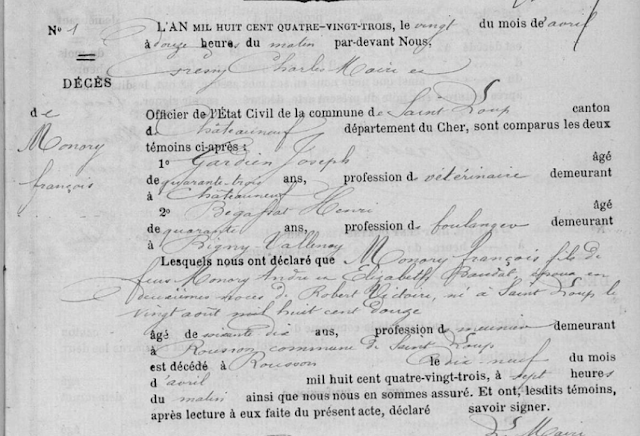 N° 1
DÉCÈS
de
Monory
françois
L'AN MIL HUIT CENT QUATRE-VINGT-TROIS, le vingt du mois de avril
à douze heures du matin par-devant Nous,
Charles Maire en
Officier de l'État Civil de la commune de Saint Loup canton
d Châteauneuf département du Cher, sont comparus les deux
témoins ci-après :
1° Gardien Joseph âgé
de quarante-trois ans, profession de vétérinaire demeurant
à Châteauneuf
2° Bigaffat Henri âgé
de quarante ans, profession d boulanger demeurant
à Bigny Vallenay
Lesquels nous ont déclaré que Monory françois fils de
feus Monory André et Elizabeth époux en
deuxièmes noces de Robert Victoire, né à Saint Loup le
vingt aout mil huit cent douze
âgé de soixante dix ans, profession de meunier demeurant
à Rousson commune de Saint Loup
est décédé à Rousson le dix neuf du mois
d'avril mil huit cent quatre-vingt-trois, à sept heures
du matin ainsi que nous nous en sommes assuré. Et ont, lesdits témoins,
après lecture à eux faite du présent acte, déclaré savoir signer.
Le Maire